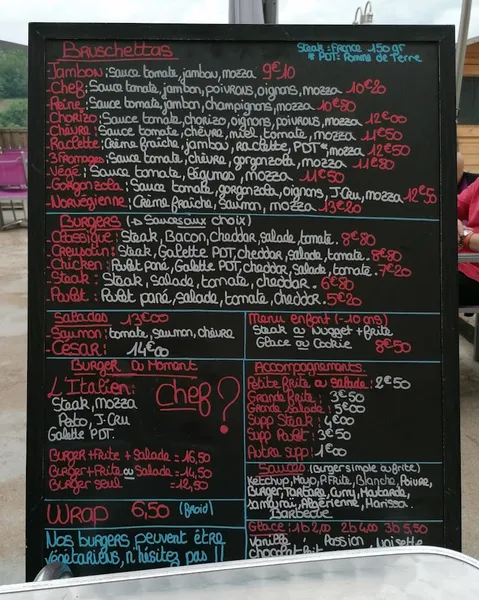 Bruschettas
Steak: France 150 gr
* PDT: Pomme de Terre
-Jambon: Sauce tomate, jambon, mozza 9€10
-Chef: Sauce tomate, jambon, poivrons, oignons, mozza 10€20
-Reine: Sauce tomate, jambon, champignons, mozza 10€80
-Chorizo: Sauce tomate, chorizo, oignons, poivrons, mozza 12€00
-Chèvre: Sauce tomate, chèvre, miel, tomate, mozza 11€50
-Raclette: Crème fraîche, jambon, raclette, PDT*, mozza 12€50
-3 Fromages: Sauce tomate, chèvre, gorgonzola, mozza 11€80
-Végé: Sauce tomate, légumes, mozza 11€50
-Gorgonzola: Sauce tomate, gorgonzola, oignons, J.Cru, mozza 12€50
-Norvégienne: Crème fraîche, Saumon, mozza 13€20
Burgers (→ Sauces aux choix)
-Classique: Steak, Bacon, cheddar, salade, tomate. 8€80
-Creusotin: Steak, Galette PDT, cheddar, salade, tomate. 8€80
-Chicken: Poulet pané, Galette PDT, cheddar, salade, tomate. 7€20
-Steak: Steak, salade, tomate, cheddar. 6€80
-Poulet: Poulet pané, salade, tomate, cheddar. 5€20
Salades 13€00
-Saumon: tomate, saumon, chèvre
-César: 14€00
Menu enfant (-10 ans)
Steak ou Nugget + frite
Glace ou Cookie 8€50
Burger du Moment
L'Italien: Chef ?
Steak, mozza
Pesto, J.Cru
Galette PDT.
Burger + Frite + Salade = 16,50
Burger + Frite ou Salade = 14,50
Burger seul = 12,50
Accompagnements
Petite frite ou salade: 2€50
Grande frite: 3€50
Grande Salade: 5€00
Supp Steak: 4€00
Supp Poulet: 3€50
Autre supp: 1€00
Sauces (Burger simple ou frite)
Ketchup, Mayo, P.Frite, Blanche, Poivre,
Burger, Tartare, Curry, Moutarde,
Samouraï, Algérienne, Harissa.
Barbecue.
Wrap 6,50 (froid)
Glace: 1b 2,00 2b 4,00 3b 5,50
Vanille, Passion, Noisette
chocolat
Nos burgers peuvent être
végétariens, n'hésitez pas !!